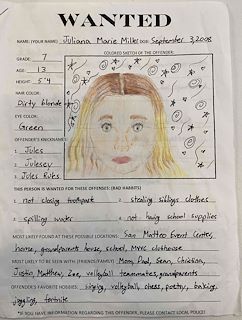 WANTED
NAME: (YOUR NAME) Juliana Marie Miller DOB: September 3, 2008
COLORED SKETCH OF THE OFFENDER:
GRADE: 7
AGE: 13
HEIGHT: 5'4
HAIR COLOR:
Dirty blonde
EYE COLOR:
Green
OFFENDER'S KNICKNAMES
1. Jules
2. Julesey
3. Jules Rules
THIS PERSON IS WANTED FOR THESE OFFENSES: (BAD HABITS)
1. not closing toothpaste 2. stealing siblings clothes
3. spilling water 4. not having school supplies
MOST LIKELY FOUND AT THESE POSSIBLE LOCATIONS: San Matteo Event Center,
home, grandparents house, school, MVRC clubhouse
MOST LIKELY TO BE SEEN WITH: (FRIENDS/FAMILY) Mom, Paul, Sean, Christian,
Justin, Matthew, Zoe, volleyball teammates, grandparents
OFFENDER'S FAVORITE HOBBIES: singing, volleyball, chess, poetry, baking,
juggling, fortnite
*IF YOU HAVE INFORMATION REGARDING THIS OFFENDER, PLEASE CONTACT LOCAL POLICE!